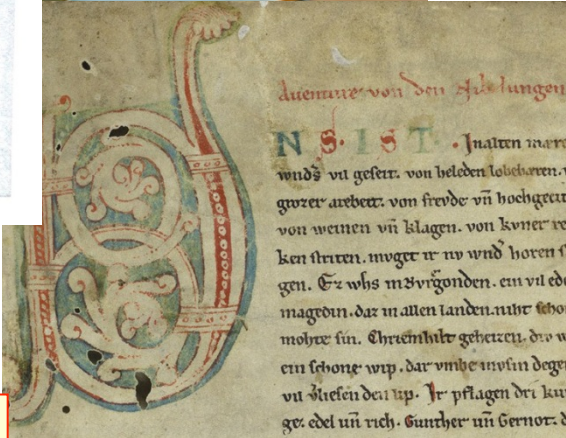 Auenture von den Nibelungen
UNS. IST. Jn alten mære
wnds vil geseit. von heleden lobebæren. v
grozer arebeit. von frevde vñ hochgecit
von weinen vñ klagen. von kvner re
ken striten. mvget ir nv wnd horen s
gen. Ez whs in Bvrgonden. ein vil ede
magedin. daz in allen landen. niht scho
mohte sin. Chriemhilt geheizen. div w
ein schone wip. dar vmbe mvsin dege
vil vliesen den lip. Jr pflagen dri kv
ge. edel vñ rich. Gunther vñ Gernot. d